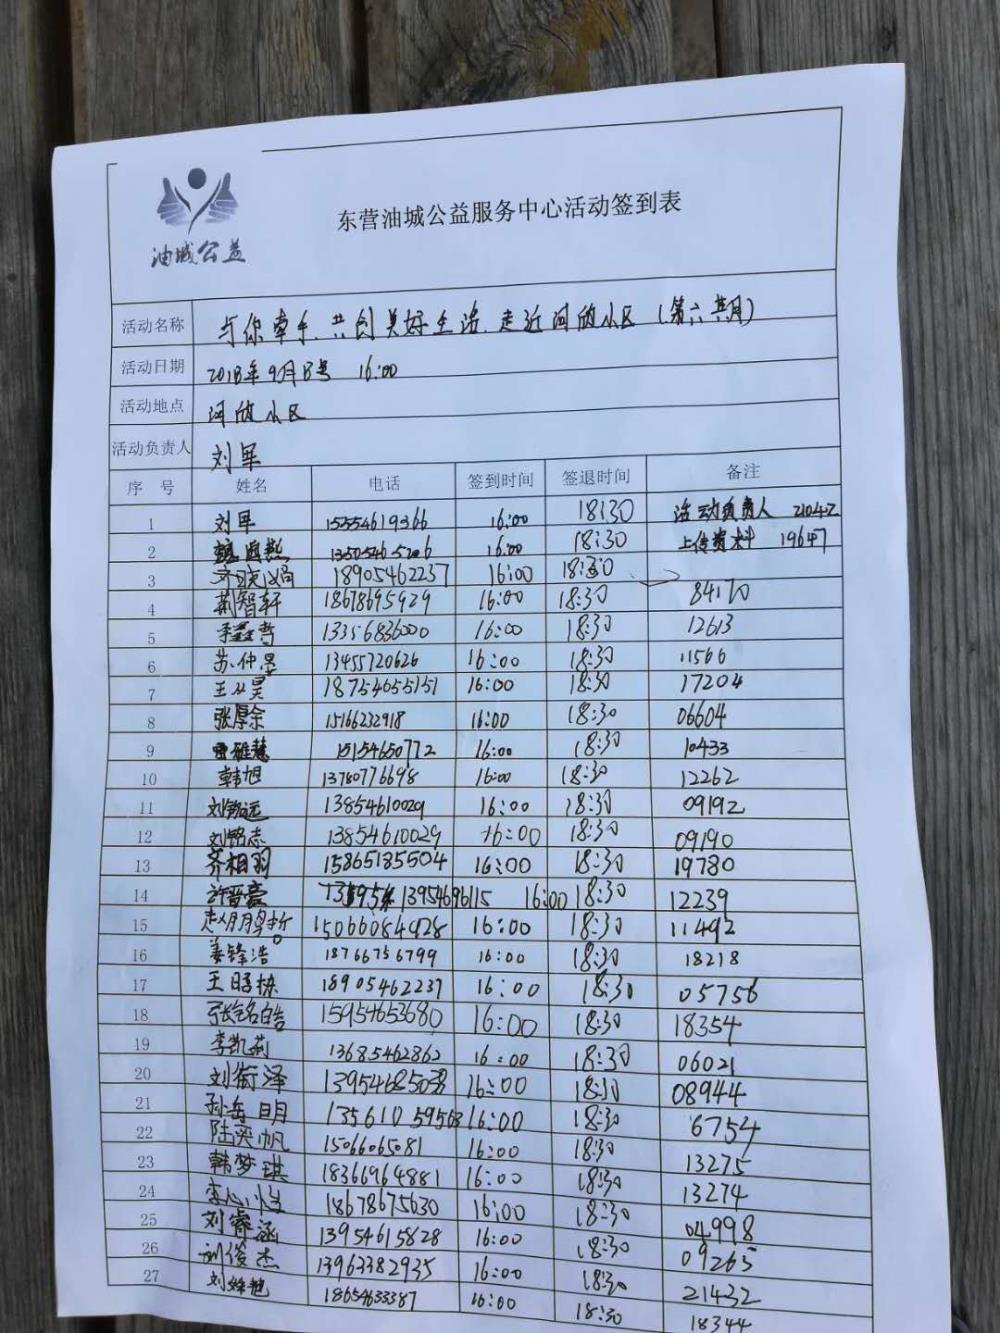 油城公益
东营油城公益服务中心活动签到表
活动名称 与你牵手、共创美好生活、走近河欣小区(第六期)
活动日期 2018年9月8号 16:00
活动地点 河欣小区
活动负责人 刘军
序 号 姓名 电话 签到时间 签退时间 备注
1 刘军 15354619366 16:00 18:30 活动负责人 21042
2 16:00 18:30 上传资料 19647
3 18905462237 16:00 18:30
4 荆智轩 18678695929 16:00 18:30 84170
5 李鑫哲 13356836000 16:00 18:30 12613
6 苏仲昱 13455720626 16:00 18:30 11566
7 王从昊 18754655151 16:00 18:30 17204
8 张厚余 15166232918 16:00 18:30 06604
9 雅慧 15154650772 16:00 18:30 10433
10 韩旭 13780776698 16:00 18:30 12262
11 刘铭远 13854610029 16:00 18:30 09192
12 刘铭志 13854610029 16:00 18:30 09190
13 齐相羽 15865185504 16:00 18:30 19780
14 许晋豪 13954696115 16:00 18:30 12239
15 15066084928 16:00 18:30 11492
16 姜锋浩 18766756799 16:00 18:30 18218
17 王 栋 18905462237 16:00 18:30 05756
18 张铭皓 15954653680 16:00 18:30 18354
19 李凯莉 13685462862 16:00 18:30 06021
20 刘衔泽 16:00 18:30 08944
21 孙岳明 16:00 18:30 6754
22 陆奕帆 15066065081 16:00 18:30 13275
23 韩梦琪 18366964881 16:00 18:30 13274
24 李心怡 18678675630 16:00 18:30 04998
25 刘睿涵 13954615828 16:00 18:30 09265
26 刘俊杰 13963382935 16:00 18:30 21432
27 18654633387 16:00 18:30 18344